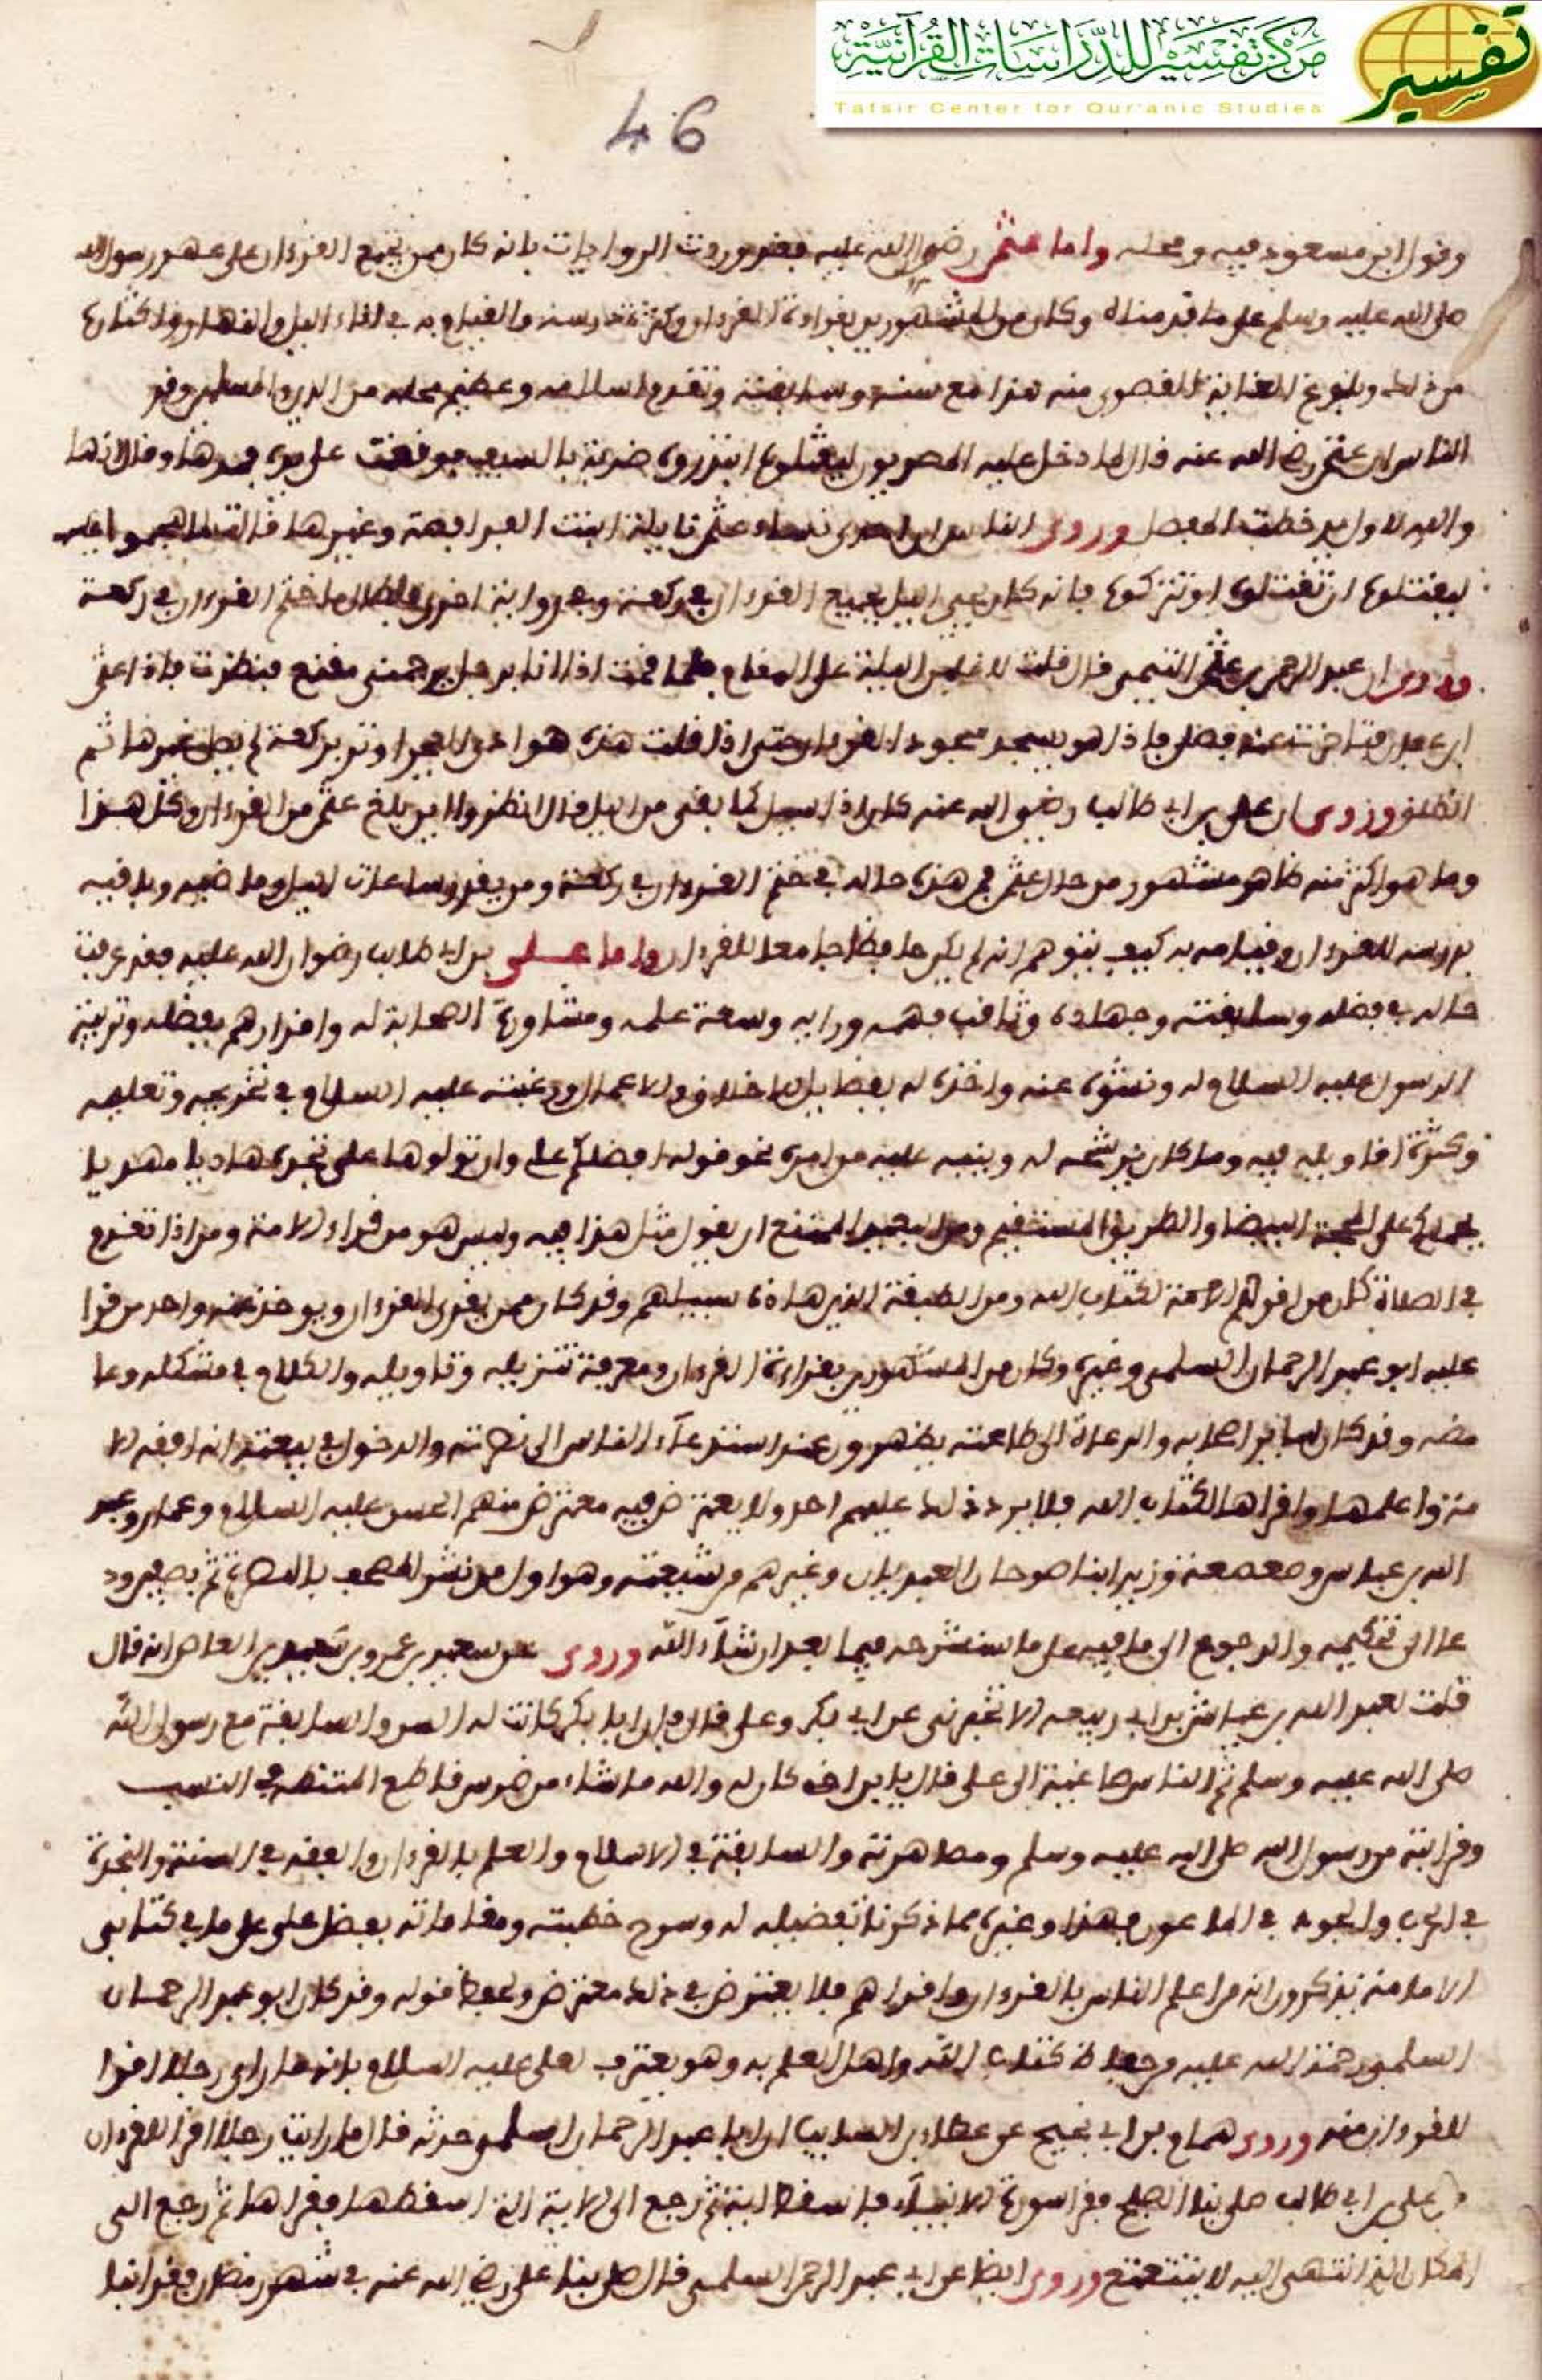 مركز تفسير للدراسات القرآنية
Tafsir Center for Qur'anic Studies
تفسير
46
وقول ابن مسعود فيه ومحله واما عثمن رضوان الله عليه فقد وردت الروايات بانه كان ممن يجمع القرءان على عهد رسول الله
صلى الله عليه وسلم على ما قدمناه وكان من المشهورين بقراءة القرءان وكثرة تدارسه والقيام به في اناء اليل والنهار واكثاره
من ذلك وبلوغ الغاية القصوى منه هذا مع سنه وسابقته وتقدم اسلامه وعظيم محله من الدين والمسلمين وقد
الناس ان عثمن رضي الله عنه قال لما دخل عليه المصريون ليقتلوه ابتدروه ضربة بالسيف فوقعت على يده فمدها وقال انها
والله لاول يد خطت المفصل وروى الناس ان احدى نساء عثمن نايلة ابنت الفرافصة وغيرها قالت لما هجموا عليه
ليقتلوه ان تقتلوه او تتركوه فانه كان يحيي اليل بجميع القرءان في ركعة وفي رواية اخرى ختم القرءان في ركعة
وروى ان عبد الرحمن بن عثمن التيمي قال قلت لاغلبن اليلة على المقام فلما قمت اذا انا برجل يزحمني مقنع فنظرت فاذا عثمن
ابن عفان فتاخرت عنه فصلى فاذا هو يسجد سجود القرءان حتى اذا قلت هذه هوادي الفجر اوتر بركعة لم يصل غيرها ثم
انطلق وروى ان علي بن ابي طالب رضي الله عنه كان اذا سيل كم بقي من اليل قال انظروا اين بلغ عثمن من القرءان وكل هذا
وما هو اكثر منه ظاهر مشهور من حال عثمن فمن هذه حاله في ختم القرءان في ركعة ومن يقدر ساعات اليل وماضيه وباقيه
بدرسه للقرءان وقيامه به كيف يتوهم انه لم يكن حافظا جامعا للقرءان واما علي بن ابي طالب رضوان الله عليه فقد عرفت
حاله في فضله وسابقته وجهاده وثاقب فهمه ورايه وسعة علمه ومشاورة الصحابة له واقرارهم بفضله وتربية
الرسول عليه السلام له ونشوه عنه واخذه له بفضايل الاخلاق والاعمال ورغبته عليه السلام في تخريجه وتعليمه
وكثرة اقاويله فيه وما كان يرشحه له وينبه عليه من امره نحو قوله اقضاكم علي وان تولوها عليا تجدوه هاديا مهديا
يحملكم على المحجة البيضا والطريق المستقيم ومن البعيد الممتنع ان يقول مثل هذا فيه وليس هو من قراء الامة ومن اذا تقدم
في الصلاة كان من اقرا الامة لكتاب الله ومن الطبقة الذين هاذه سبيلهم وقد كان ممن يقرى القرءان ويوخذ عنه واحد من قرا
عليه ابو عبد الرحمان السلمي وغيره وكان من المشهورين بقراءة القرءان ومعرفة تنزيله وتاويله والكلام في مشكله وغا
مضه وقد كان ساير اصحابه والدعاة الى طاعته يظهرون عند استدعاء الناس الى نصرته والدخول في بيعته انه افقه الا
مة واعلمها واقراها لكتاب الله فلا يرد ذلك عليهم احد ولا يعترض فيه معترض منهم الحسن عليه السلام وعمار وعبد
الله بن عباس وصعصعة وزيد ابنا صوحان العبديان وغيرهم من شيعته وهو اول من نشر المصحف بالبصرة ثم بصفين ود
عا الى تحكيمه والرجوع الى ما فيه على ما سنشرحه فيما بعد ان شاء الله وروى عن سعيد بن عمرو بن سعيد بن العاص انه قال
قلت لعبد الله بن عياش بن ابي ربيعة الا تخبرني عن ابي بكر وعلي قال فان ابا بكر كانت له السن والسابقة مع رسول الله
صلى الله عليه وسلم ثم الناس صاغية الى علي قال يا بن اخي كان له والله ما شاء من ضرس قاطع في النسب
وقرابته من رسول الله صلى الله عليه وسلم ومصاهرته والسابقة في الاسلام والعلم بالقرءان والفقه في السنة والنجدة
في الحرب والجود في الماعون فهذا وغيره مما ذكرنا تفضيله له وسوى خطبته ومقاماته بفضل علي على ما في كتابي
الامامة يذكرون انه من اعلم الناس بالقرءان واقراهم فلا يعترض في ذلك معترض قوله وقد كان ابو عبد الرحمان
السلمي رحمة الله عليه من حفاظ كتاب الله واهل العلم به وهو يعترف لعلي عليه السلام بانه ما راى رجلا اقرا
للقرءان منه وروى همام بن ابي نجيح عن عطاء بن السايب ان ابا عبد الرحمان السلمي حدثه قال ما رايت رجلا اقرا للقرءان
من علي بن ابي طالب صلى بنا الصبح فقرا سورة الانبياء فاسقط اية ثم رجع الى الاية التي اسقطها فقراها ثم رجع الى
المكان الذي انتهى اليه لا يتتعتع وروى ايضا عن ابي عبد الرحمن السلمي قال صلى بنا علي رضي الله عنه في شهر رمضان